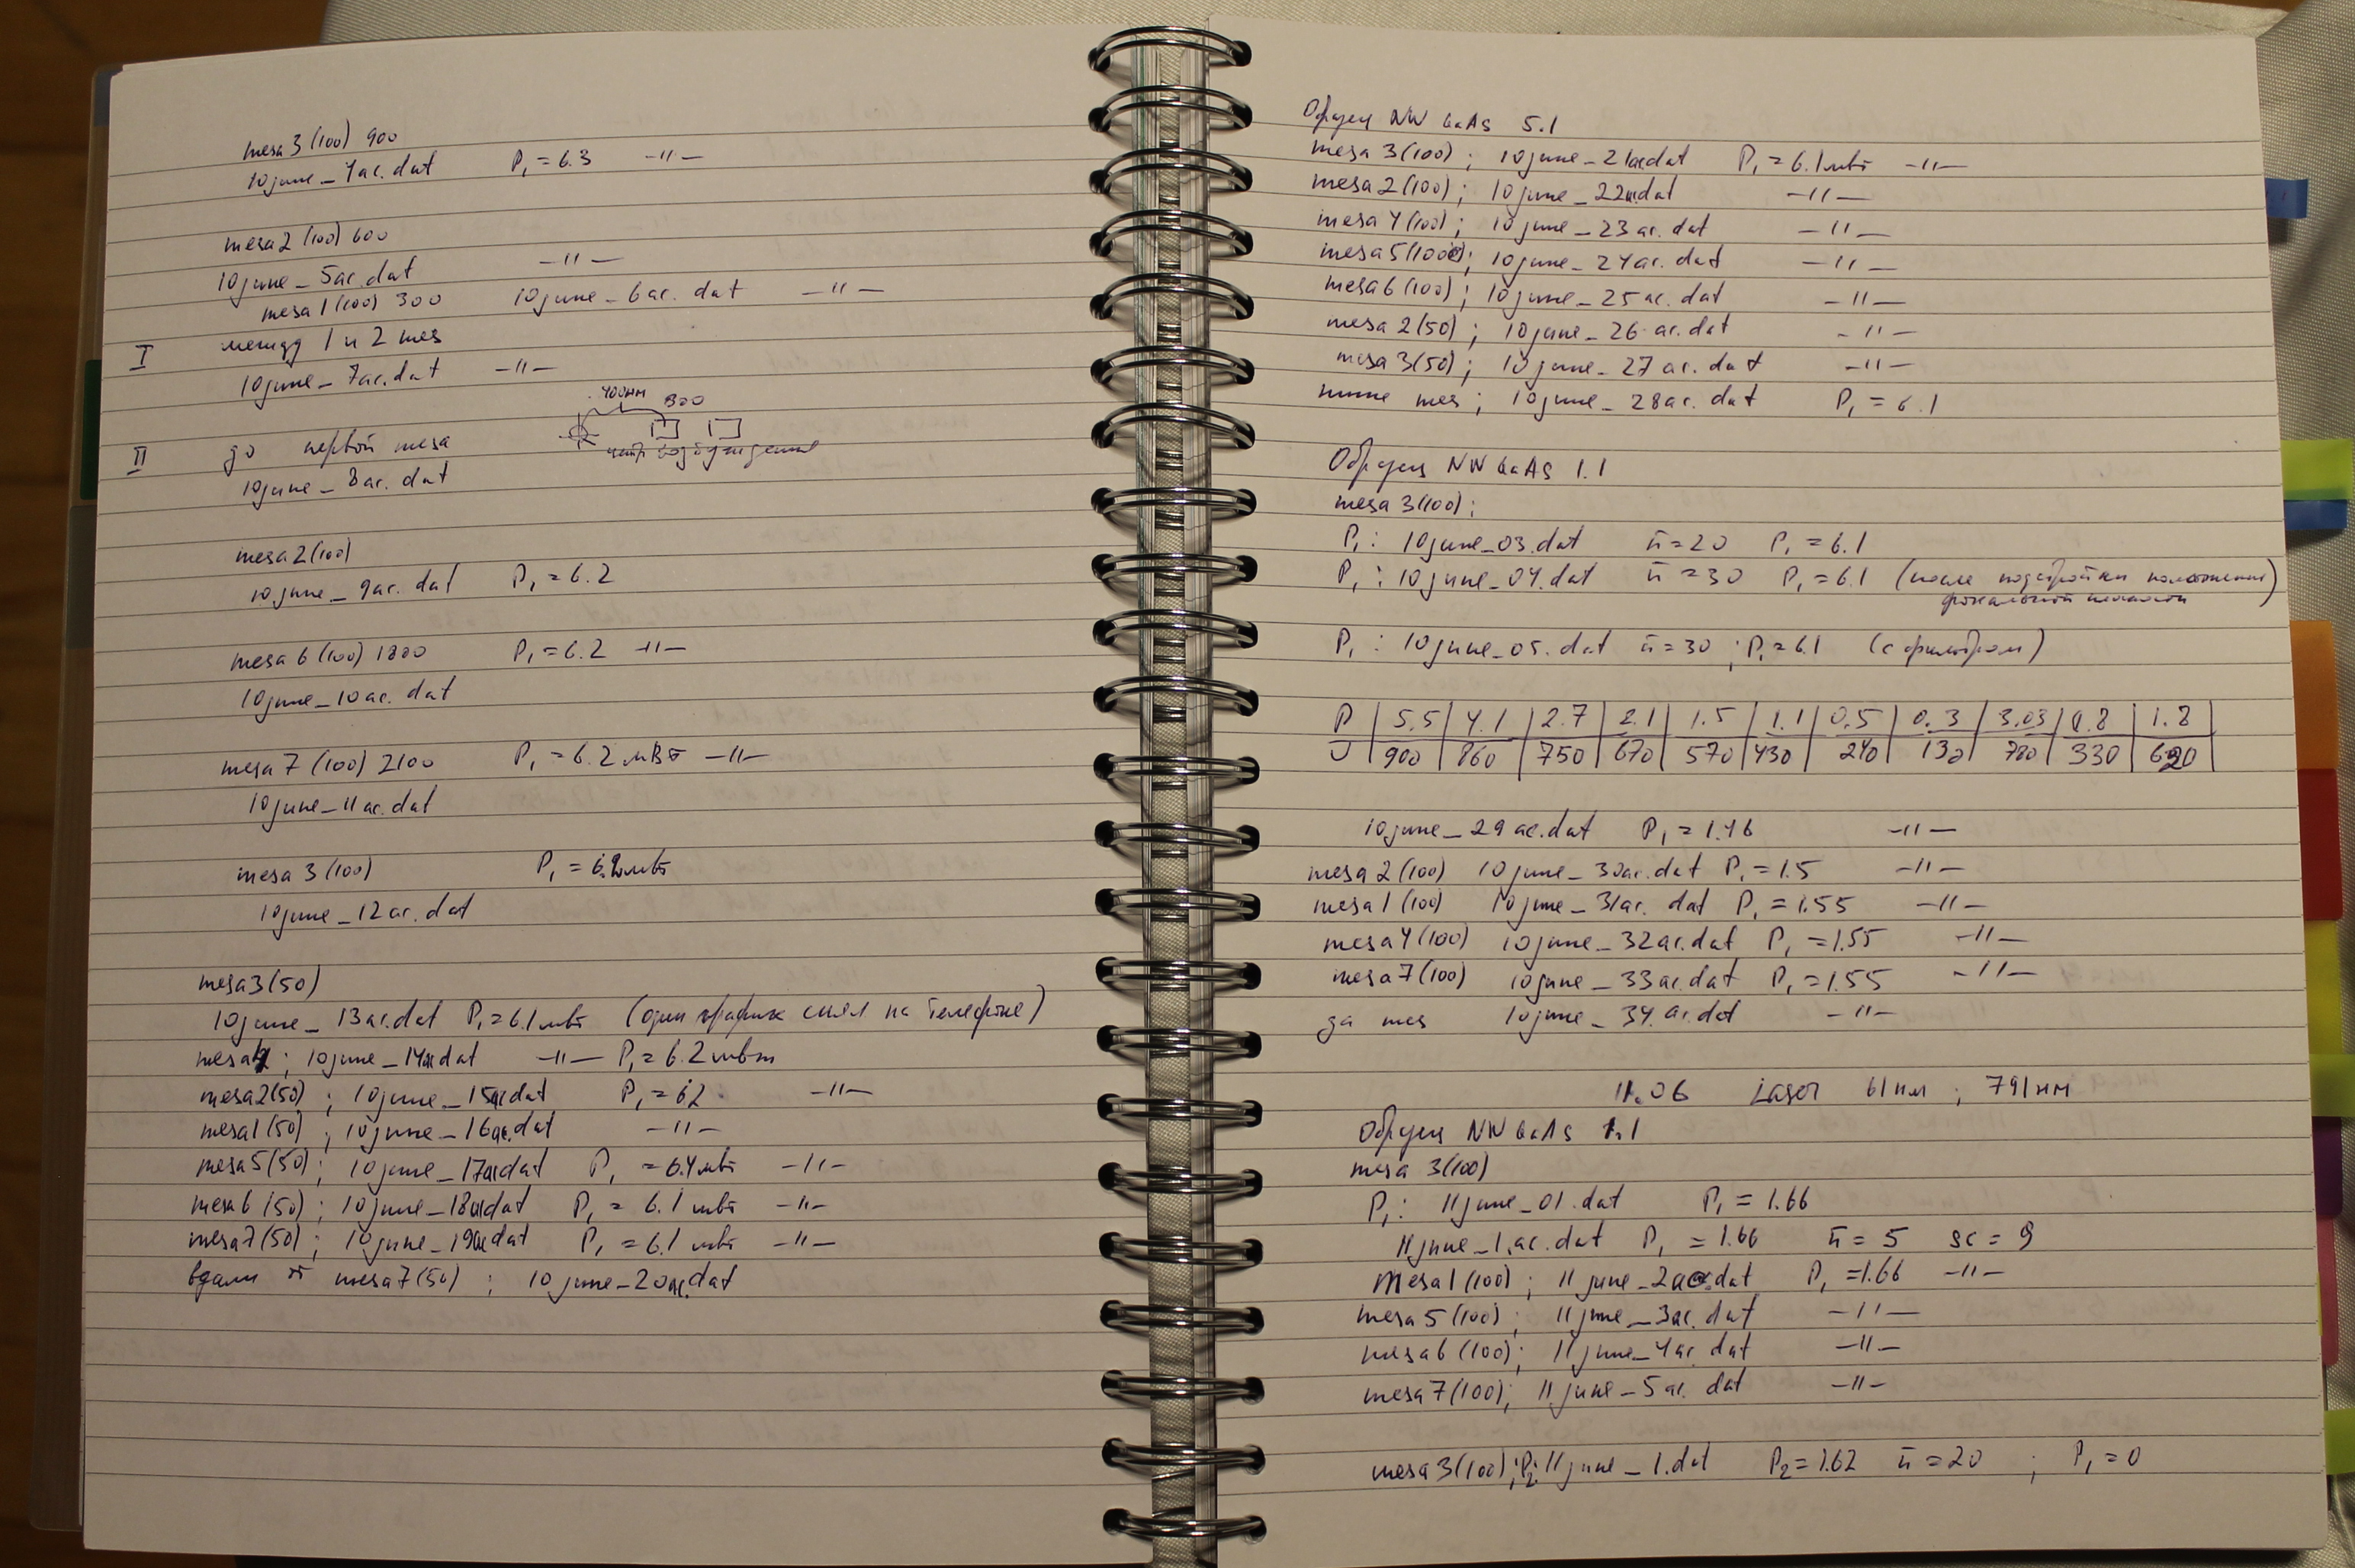 mesa 3 (100) 900
10june_4ac.dat P₁ = 6.3 -11-
mesa 2 (100) 600
10june_5ac.dat -11-
mesa 1 (100) 300 10june_6ac.dat -11-
I между 1 и 2 mes
10june_7ac.dat -11-
400нм 300
II до первой mesa
центр возбуждения
10june_8ac.dat
mesa 2 (100)
10june_9ac.dat P₁ = 6.2
mesa 6 (100) 1800 P₁ = 6.2 -11-
10june_10ac.dat
mesa 7 (100) 2100 P₁ = 6.2 мВт -11-
10june_11ac.dat
mesa 3 (100) P₁ = 6.2 мВт
10june_12ac.dat
mesa 3 (50)
10june_13ac.dat P₁ = 6.1 мВт (один график снял на телефоне)
mesa ; 10june_14ac.dat -11- P₁ = 6.2 мВт
mesa 2 (50) ; 10june_15ac.dat P₁ = 6.2 -11-
mesa 1 (50) ; 10june_16ac.dat -11-
mesa 5 (50) ; 10june_17ac.dat P₁ = 6.4 мВт -11-
mesa 6 (50) ; 10june_18ac.dat P₁ = 6.1 мВт -11-
mesa 7 (50) ; 10june_19ac.dat P₁ = 6.1 мВт -11-
вдали от mesa 7 (50) ; 10june_20ac.dat
Образец NW GaAs 5.1
mesa 3 (100) ; 10june_21ac.dat P₁ = 6.1 мВт -11-
mesa 2 (100) ; 10june_22ac.dat -11-
mesa 4 (100) ; 10june_23ac.dat -11-
mesa 5 (100) ; 10june_24ac.dat -11-
mesa 6 (100) ; 10june_25ac.dat -11-
mesa 2 (50) ; 10june_26ac.dat -11-
mesa 3 (50) ; 10june_27ac.dat -11-
ниже mes ; 10june_28ac.dat P₁ = 6.1
Образец NW GaAs 1.1
mesa 3 (100) ;
P₁ : 10june_03.dat n̄ = 20 P₁ = 6.1
P₁ : 10june_04.dat n̄ = 30 P₁ = 6.1 (после подстройки положения
фокальной плоскости)
P₁ : 10june_05.dat n̄ = 30 ; P₁ = 6.1 (с фильтром)
P | 5.5 | 4.1 | 2.7 | 2.1 | 1.5 | 1.1 | 0.5 | 0.3 | 3.03 | 0.8 | 1.8
J | 900 | 860 | 750 | 670 | 570 | 430 | 240 | 130 | 780 | 330 | 620
10june_29ac.dat P₁ = 1.46 -11-
mesa 2 (100) 10june_30ac.dat P₁ = 1.5 -11-
mesa 1 (100) 10june_31ac.dat P₁ = 1.55 -11-
mesa 4 (100) 10june_32ac.dat P₁ = 1.55 -11-
mesa 7 (100) 10june_33ac.dat P₁ = 1.55 -11-
за mes 10june_34.ac.dat -11-
11.06 Laser 61нм ; 791нм
Образец NW GaAs 1.1
mesa 3 (100)
P₁ : 11june_01.dat P₁ = 1.66
11june_1.ac.dat P₁ = 1.66 n̄ = 5 sc = 9
mesa 1 (100) ; 11june_2ac.dat P₁ = 1.66 -11-
mesa 5 (100) ; 11june_3ac.dat -11-
mesa 6 (100) ; 11june_4ac.dat -11-
mesa 7 (100) ; 11june_5ac.dat -11-
mesa 3 (100) ; P₂: 11june_1.dat P₂ = 1.62 n̄ = 20 ; P₁ = 0